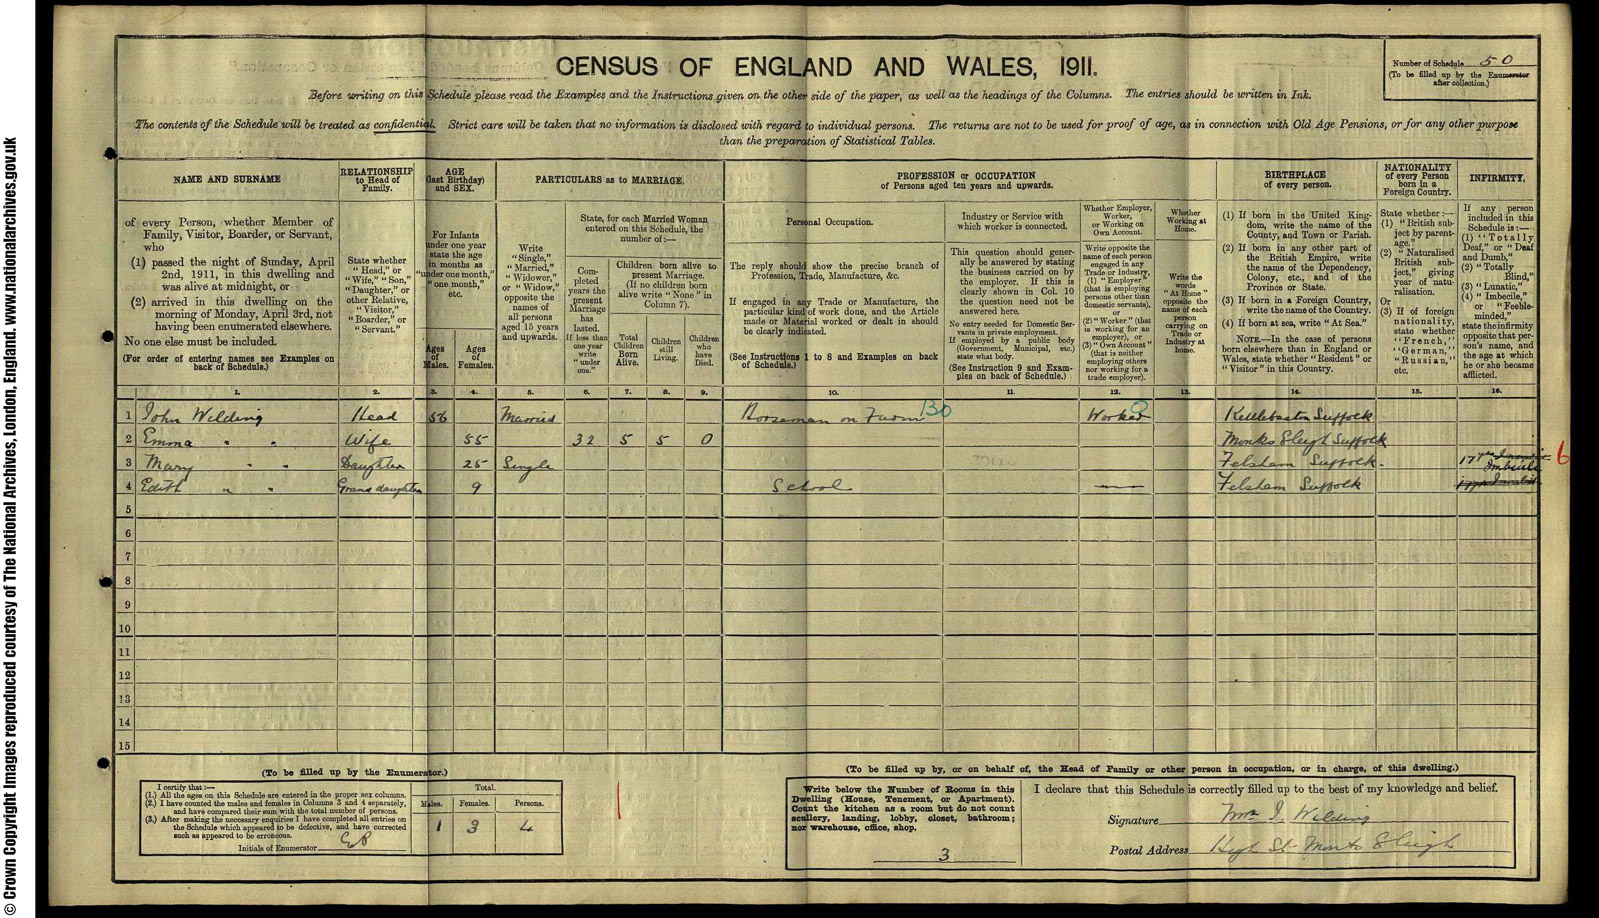 © Crown Copyright Images reproduced courtesy of The National Archives, London, England. www.nationalarchives.gov.uk
CENSUS OF ENGLAND AND WALES, 1911.
Number of Schedule 50
(To be filled up by the Enumerator
after collection.)
Before writing on this Schedule please read the Examples and the Instructions given on the other side of the paper, as well as the headings of the Columns. The entries should be written in Ink.
The contents of the Schedule will be treated as confidential. Strict care will be taken that no information is disclosed with regard to individual persons. The returns are not to be used for proof of age, as in connection with Old Age Pensions, or for any other purpose
than the preparation of Statistical Tables.
NAME AND SURNAME
of every Person, whether Member of
Family, Visitor, Boarder, or Servant,
who
(1) passed the night of Sunday, April
2nd, 1911, in this dwelling and
was alive at midnight, or
(2) arrived in this dwelling on the
morning of Monday, April 3rd, not
having been enumerated elsewhere.
No one else must be included.
(For order of entering names see Examples on
back of Schedule.)
RELATIONSHIP
to Head of
Family.
State whether
"Head," or
"Wife," "Son,"
"Daughter," or
other Relative,
"Visitor,"
"Boarder," or
"Servant."
AGE
(last Birthday)
and SEX.
For Infants
under one year
state the age
in months as
"under one month,"
"one month,"
etc.
Ages
of
Males.
Ages
of
Females.
PARTICULARS as to MARRIAGE.
Write
"Single,"
"Married,"
"Widower,"
or "Widow,"
opposite the
names of
all persons
aged 15 years
and upwards.
State, for each Married Woman
entered on this Schedule, the
number of:—
Com-
pleted
years the
present
Marriage
has
lasted.
If less than
one year
write
"under
one."
Children born alive to
present Marriage.
(If no children born
alive write "None" in
Column 7).
Total
Children
Born
Alive.
Children
still
Living.
Children
who
have
Died.
PROFESSION or OCCUPATION
of Persons aged ten years and upwards.
Personal Occupation.
The reply should show the precise branch of
Profession, Trade, Manufacture, &c.
If engaged in any Trade or Manufacture, the
particular kind of work done, and the Article
made or Material worked or dealt in should
be clearly indicated.
(See Instructions 1 to 8 and Examples on back
of Schedule.)
Industry or Service with
which worker is connected.
This question should gener-
ally be answered by stating
the business carried on by
the employer. If this is
clearly shown in Col. 10
the question need not be
answered here.
No entry needed for Domestic Ser-
vants in private employment.
If employed by a public body
(Government, Municipal, etc.)
state what body.
(See Instruction 9 and Exam-
ples on back of Schedule.)
Whether Employer,
Worker,
or Working on
Own Account.
Write opposite the
name of each person
engaged in any
Trade or Industry,
(1) "Employer"
(that is employing
persons other than
domestic servants),
or
(2) "Worker" (that
is working for an
employer), or
(3) "Own Account"
(that is neither
employing others
nor working for a
trade employer).
Whether
Working at
Home.
Write the
words
"At Home"
opposite the
name of each
person
carrying on
Trade or
Industry at
home.
BIRTHPLACE
of every person.
(1) If born in the United King-
dom, write the name of the
County, and Town or Parish.
(2) If born in any other part of
the British Empire, write
the name of the Dependency,
Colony, etc., and of the
Province or State.
(3) If born in a Foreign Country,
write the name of the Country.
(4) If born at sea, write "At Sea."
NOTE.—In the case of persons
born elsewhere than in England or
Wales, state whether "Resident" or
"Visitor" in this Country.
NATIONALITY
of every Person
born in a
Foreign Country.
State whether:—
(1) "British sub-
ject by parent-
age."
(2) "Naturalised
British sub-
ject," giving
year of natu-
ralisation.
Or
(3) If of foreign
nationality,
state whether
"French,"
"German,"
"Russian,"
etc.
INFIRMITY.
If any person
included in this
Schedule is:—
(1) "Totally
Deaf," or "Deaf
and Dumb,"
(2) "Totally
Blind,"
(3) "Lunatic,"
(4) "Imbecile,"
or "Feeble-
minded,"
state the infirmity
opposite that per-
son's name, and
the age at which
he or she became
afflicted.
1. 2. 3. 4. 5. 6. 7. 8. 9. 10. 11. 12. 13. 14. 15. 16.
1 John Wilding Head 56 Married Horseman on Farm 130 Worker Kettlebaston Suffolk
2 Emma " " Wife 55 32 5 5 0 Monks Eleigh Suffolk
3 Mary " " Daughter 25 Single Felsham Suffolk. 17 Imbecile 6
4 Edith " " Grand daughter 9 School — Felsham Suffolk
5
6
7
8
9
10
11
12
13
14
15
(To be filled up by the Enumerator.)
I certify that:—
(1.) All the ages on this Schedule are entered in the proper sex columns.
(2.) I have counted the males and females in Columns 3 and 4 separately,
and have compared their sum with the total number of persons.
(3.) After making the necessary enquiries I have completed all entries on
the Schedule which appeared to be defective, and have corrected
such as appeared to be erroneous.
Initials of Enumerator
Total.
Males. Females. Persons.
1 3 4
(To be filled up by, or on behalf of, the Head of Family or other person in occupation, or in charge, of this dwelling.)
Write below the Number of Rooms in this
Dwelling (House, Tenement, or Apartment).
Count the kitchen as a room but do not count
scullery, landing, lobby, closet, bathroom;
nor warehouse, office, shop.
3
I declare that this Schedule is correctly filled up to the best of my knowledge and belief.
Signature Mrs J. Wilding
Postal Address High St Monks Eleigh